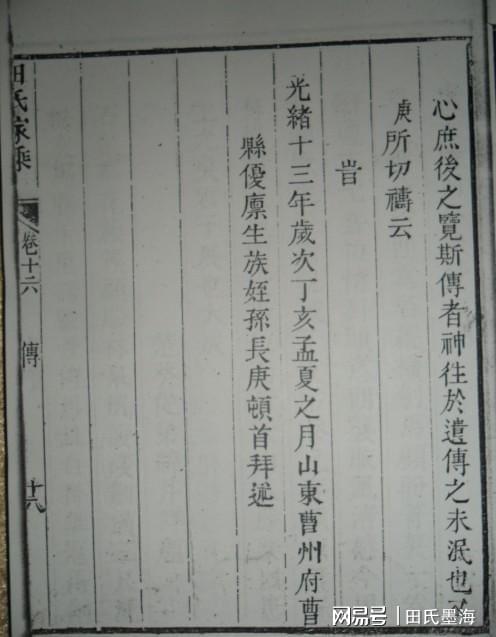 心庶後之覽斯傳者神往於遺傳之未泯也
庚所切禱云
旹
光緒十三年歲次丁亥孟夏之月山東曹州府曹
縣優廪生族姪孫長庚頓首拜述
田氏家乘
卷十六
傳
十八
網易号|田氏墨海